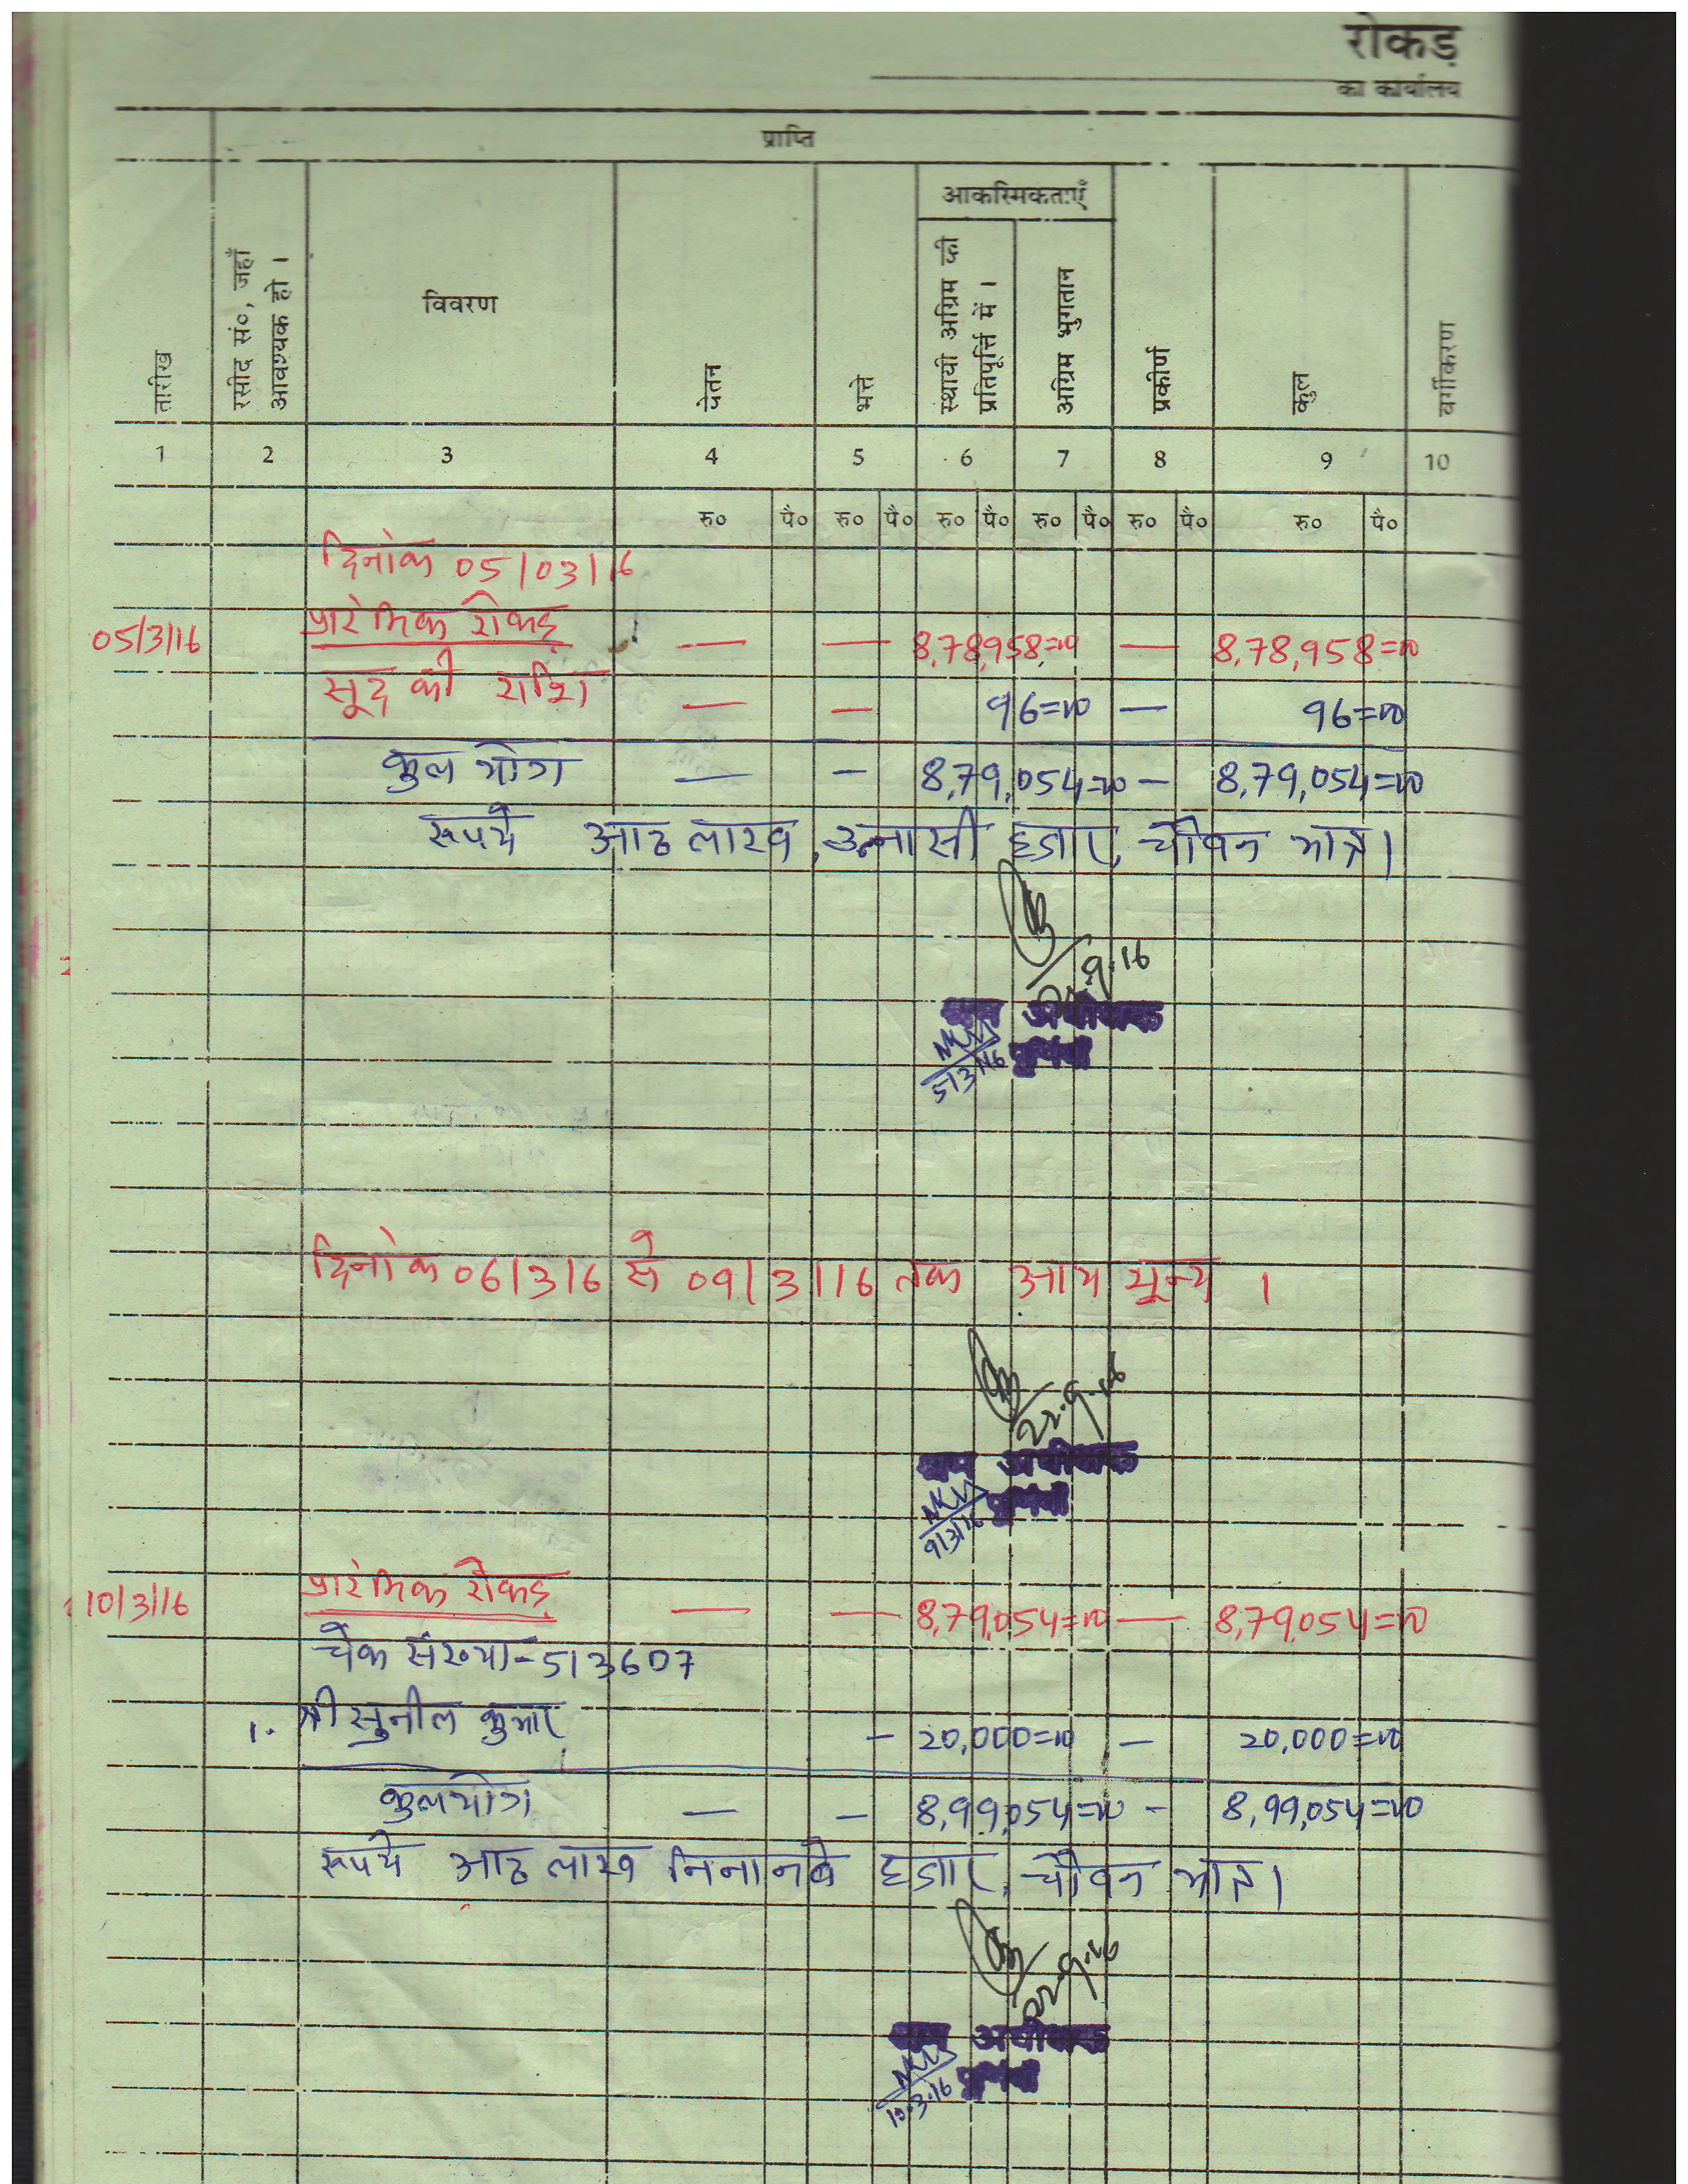 रोकड़
का कार्यालय
प्राप्ति
आकस्मिकताएँ
तारीख
रसीद सं०, जहाँ आवश्यक हो ।
विवरण
वेतन
भत्ते
स्थायी अग्रिम की प्रतिपूर्ति में ।
अग्रिम भुगतान
प्रकीर्ण
कुल
वर्गीकरण
1 2 3 4 5 6 7 8 9 10
रु० पै० रु० पै० रु० पै० रु० पै० रु० पै० रु० पै०
दिनांक 05/03/16
05/3/16 प्रारंभिक रोकड़ — — 8,78,958=00 — 8,78,958=00
सूद की राशि — — 96=00 — 96=00
कुल योग — - 8,79,054=00 - 8,79,054=00
रूपये आठ लाख, उन्नासी हजार, चौवन मात्र।
9.16
श्रम अधीक्षक
पूर्णियाँ
5/3/16
दिनांक 06/3/16 से 09/3/16 तक आय शून्य ।
22.9.16
श्रम अधीक्षक
पूर्णियाँ
9/3/16
10/3/16 प्रारंभिक रोकड़ — — 8,79,054=00 — 8,79,054=00
चेक संख्या-513607
1. श्री सुनील कुमार - 20,000=00 — 20,000=00
कुल योग — - 8,99,054=00 - 8,99,054=00
रूपये आठ लाख निनानवे हजार, चौवन मात्र।
22.9.16
श्रम अधीक्षक
पूर्णियाँ
10.3.16